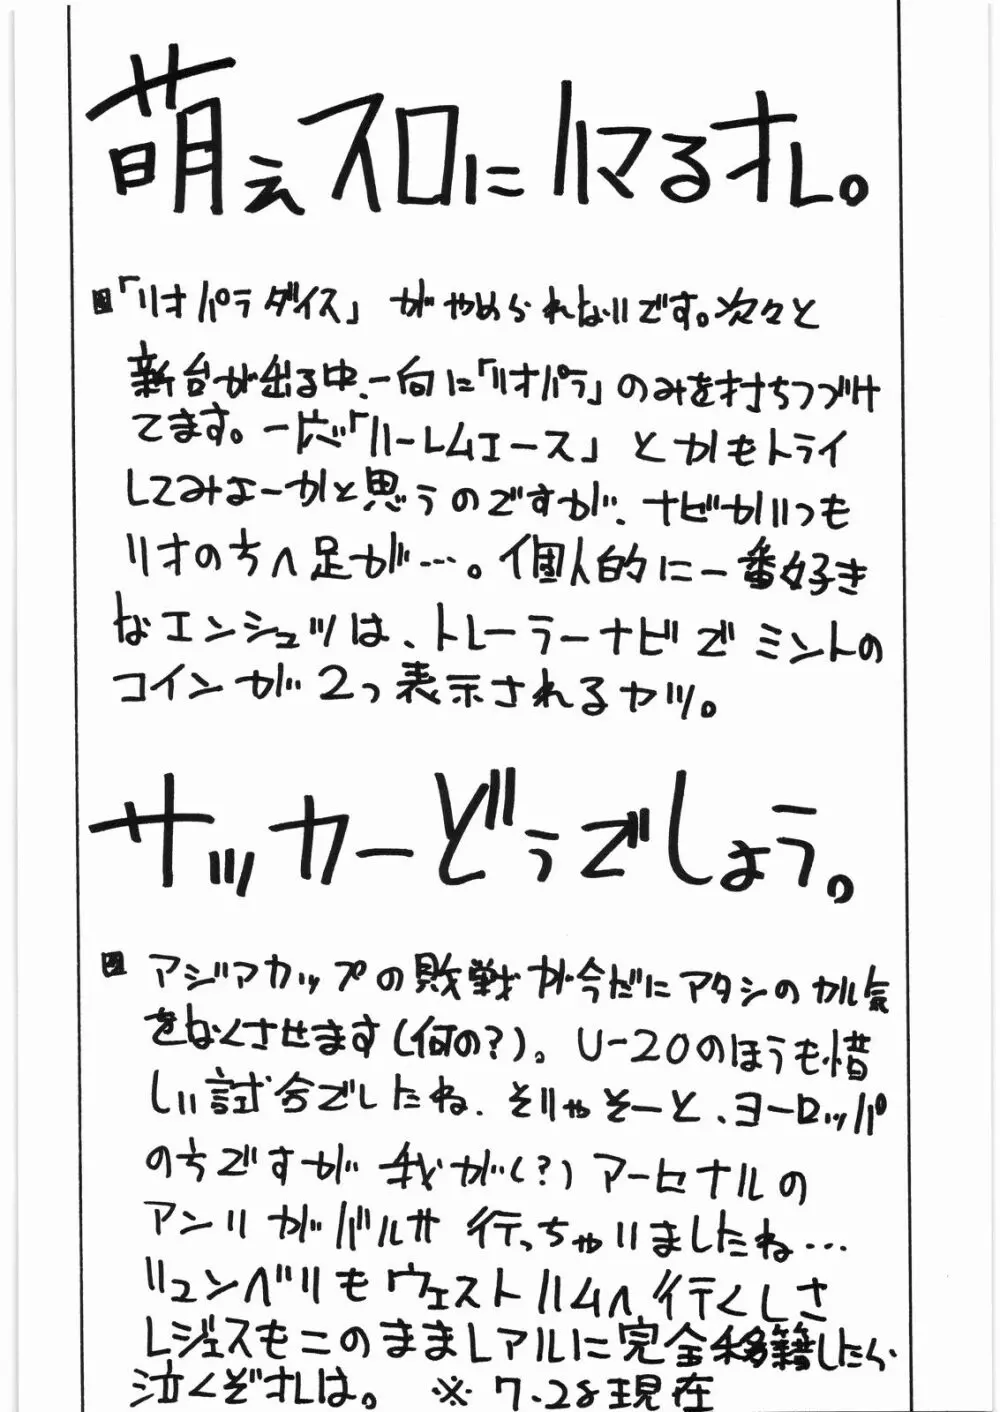 萌えスロにハマるオレ。
「リオパラダイス」がやめられないです。次々と
新台が出る中、一向に「リオパラ」のみを打ちつづけ
てます。一応「ハーレムエース」とかもトライ
してみよーかと思うのですが、ナゼかいつも
リオの方へ足が…。個人的に一番好き
なエンシュツは、トレーラーナビでミントの
コインが2つ表示されるヤツ。
サッカーどうでしょう。
アジアカップの敗戦が今だにアタシのヤル気
をなくさせます(何の?)。U-20のほうも惜
しい試合でしたね。そりゃそーと、ヨーロッパ
の方ですが我が(?)アーセナルの
アンリがバルサ行っちゃいましたね…
リュンベリもウェストハムへ行くしさ
レジェスもこのままレアルに完全移籍したら
泣くぞオレは。 ※7.28現在